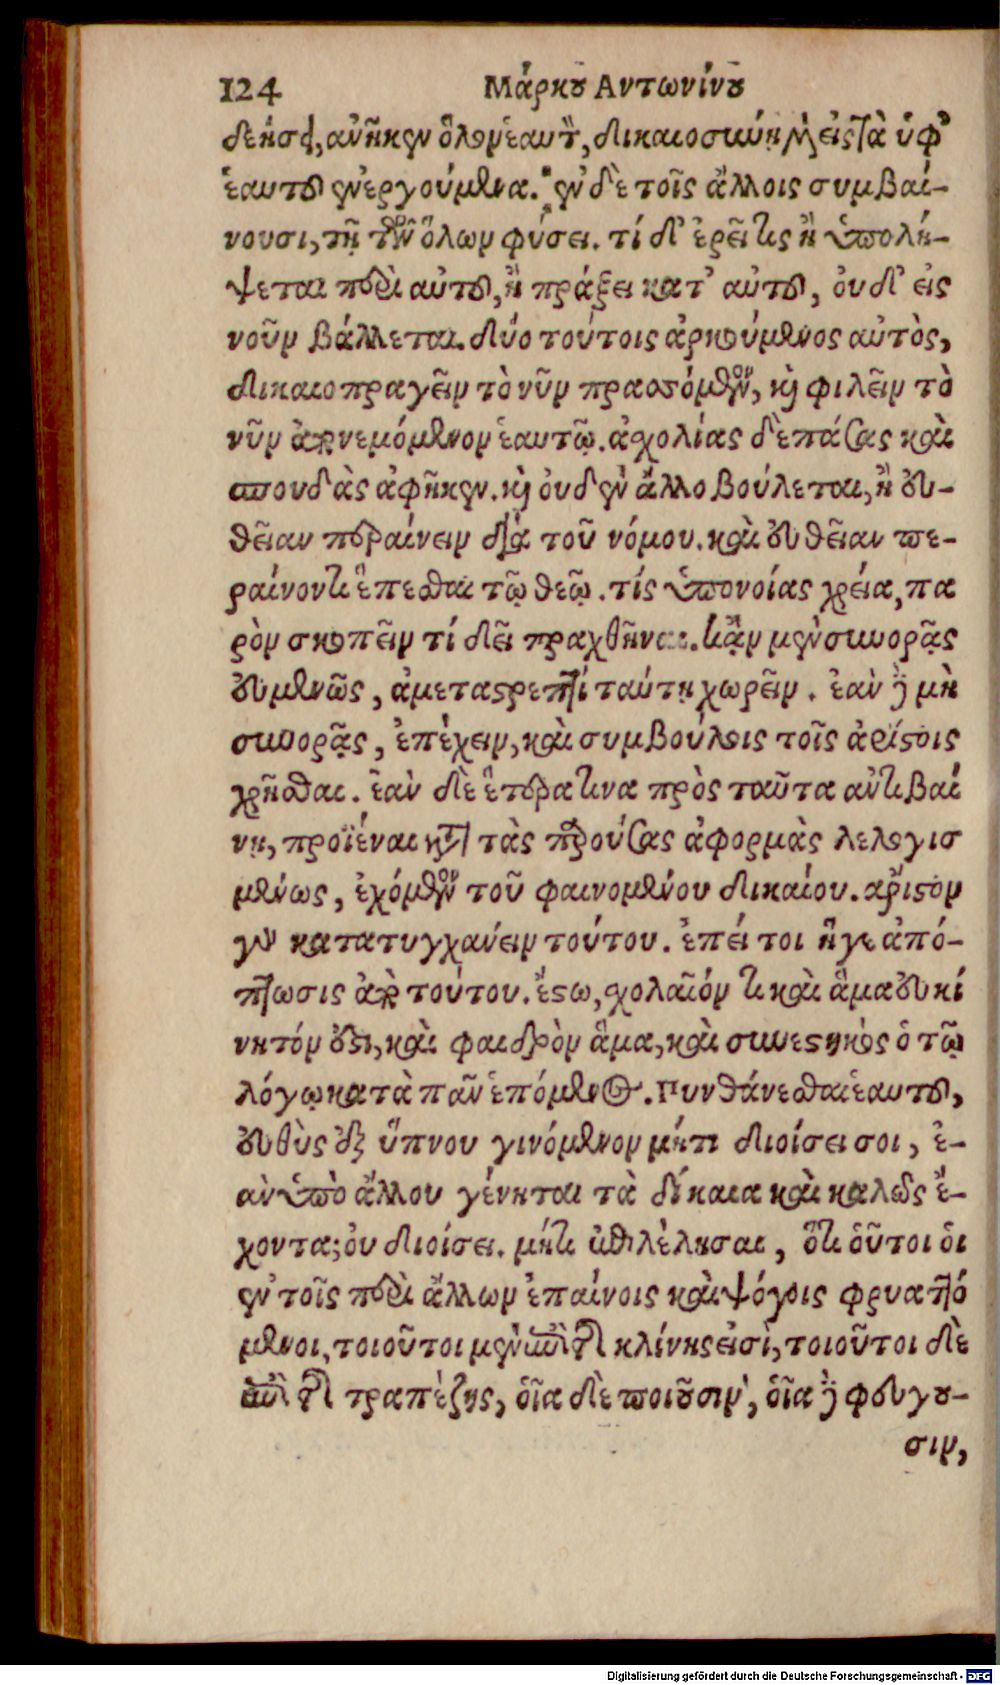 124 Μάρκου Αντωνίνου
δεήσει, ἀνῆκεν ὅλον ἑαυτὸν, δικαιοσύνῃ μὲν εἰς τὰ ὑφ'
ἑαυτοῦ ἐνεργούμενα. ἐν δὲ τοῖς ἄλλοις συμβαί-
νουσι, τῇ τῶν ὅλων φύσει. τί δ' ἐρεῖ τις ἢ ὑπολή-
ψεται περὶ αὐτοῦ, ἢ πράξει κατ' αὐτοῦ, ὀυδ' εἰς
νοῦν βάλλεται. δύο τούτοις ἀρκούμενος αὐτὸς,
δικαιοπραγεῖν τὸ νῦν πρασσόμενον, καὶ φιλεῖν τὸ
νῦν ἀπονεμόμενον ἑαυτῷ. ἀσχολίας δὲ πάσας καὶ
σπουδὰς ἀφῆκεν. καὶ ὀυδὲν ἄλλο βούλεται, ἢ εὐ-
θεῖαν περαίνειν διὰ τοῦ νόμου. καὶ εὐθεῖαν πε-
ραίνοντι ἕπεσθαι τῷ θεῷ. τίς ὑπονοίας χρεία, πα
ρὸν σκοπεῖν τί δεῖ πραχθῆναι. κἂν μὲν συνορᾷς
εὐμενῶς, ἀμεταστρεπτὶ ταύτῃ χωρεῖν. ἐὰν δὲ μὴ
συνορᾷς, ἐπέχειν, καὶ συμβούλοις τοῖς ἀρίστοις
χρῆσθαι. ἐὰν δὲ ἕτερα τινα πρὸς ταῦτα ἀντιβαί
νῃ, προϊέναι κατὰ τὰς παρούσας ἀφορμὰς λελογισ
μένως, ἐχόμενον τοῦ φαινομένου δικαίου. ἄριστον
γὰρ κατατυγχάνειν τούτου. ἐπεί τοι ἥγε ἀπό-
πτωσις ἀπὸ τούτου. ἔστω, σχολαῖόν τι καὶ ἅμα εὐκί
νητόν ἐστι, καὶ φαιδρὸν ἅμα, καὶ συνεστηκὸς ὁ τῷ
λόγῳ κατὰ πᾶν ἑπόμενος. Πυνθάνεσθαι ἑαυτοῦ,
εὐθὺς ἐξ ὕπνου γινόμενον μήτι διοίσει σοι, ἐ-
ὰν ὑπὸ ἄλλου γένηται τὰ δίκαια καὶ καλῶς ἔ-
χοντα; ὀυ διοίσει. μήτι ἐπιλέλησαι, ὅτι ὁῦτοι ὁι
ἐν τοῖς περὶ ἄλλων ἐπαίνοις καὶ ψόγοις φρυαττό
μενοι, τοιοῦτοι μὲν ἐπὶ τῆς κλίνης εἰσὶ, τοιοῦτοι δὲ
ἐπὶ τῆς τραπέζης, ὁῖα δὲ ποιοῦσιν, ὁῖα δὲ φευγου-
σιν,
Digitalisierung gefördert durch die Deutsche Forschungsgemeinschaft - DFG